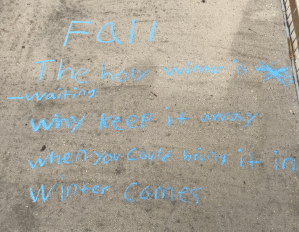 Fall
The hole winter is
waiting
why keep it away
when you could bring it in
Winter Cames